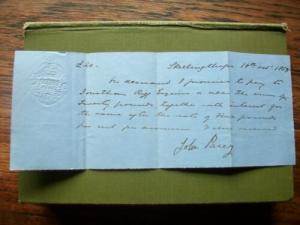 £20. Skellingthorpe 18th Oct 1859
On demand I promise to pay to
Jonathan Esquire or order the sum of
Twenty pounds together with interest for
the same after the rate of pounds
per cent per annum value received
John